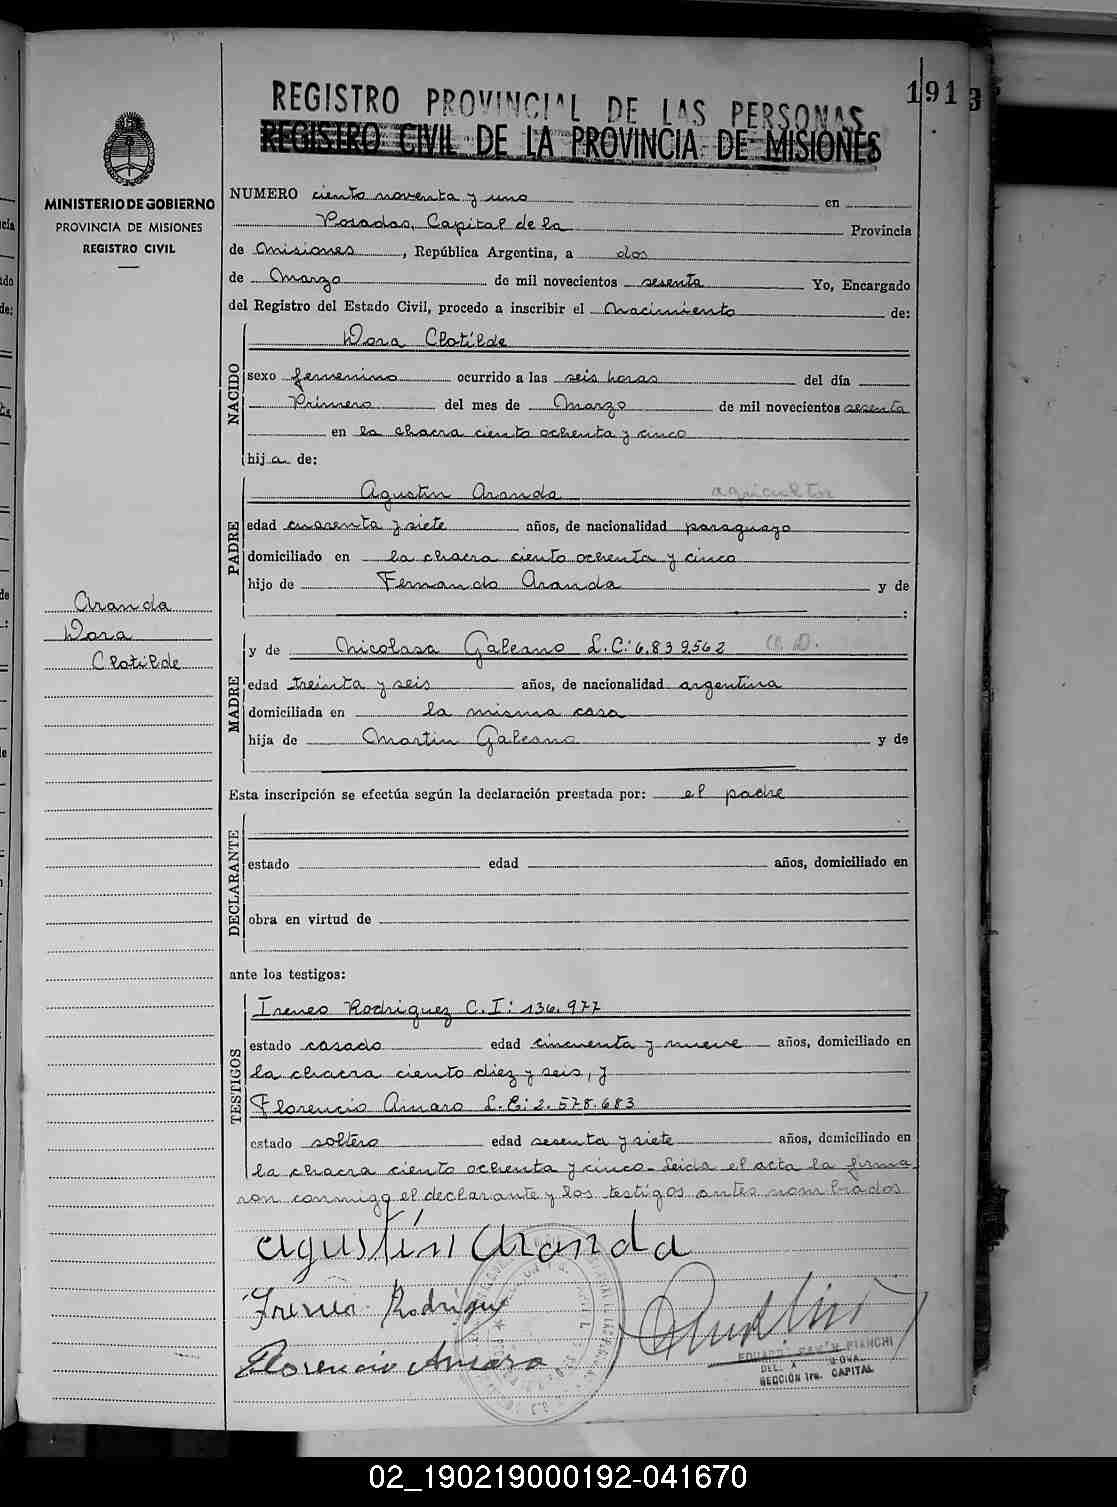 REGISTRO PROVINCIAL DE LAS PERSONAS
REGISTRO CIVIL DE LA PROVINCIA DE MISIONES
191
MINISTERIO DE GOBIERNO
PROVINCIA DE MISIONES
REGISTRO CIVIL
NUMERO ciento noventa y uno en
Posadas, Capital de la Provincia
de Misiones, República Argentina, a dos
de Marzo de mil novecientos sesenta Yo, Encargado
del Registro del Estado Civil, procedo a inscribir el nacimiento de:
NACIDO
Dora Clotilde
sexo femenino ocurrido a las seis horas del día
Primero del mes de Marzo de mil novecientos sesenta
en la chacra ciento ochenta y cinco
hija de:
PADRE
Agustin Aranda agricultor
edad cuarenta y siete años, de nacionalidad paraguayo
domiciliado en la chacra ciento ochenta y cinco
hijo de Fernando Aranda y de
Aranda
Dora
Clotilde
MADRE
y de Nicolasa Galeano L.C: 6.839.562
edad treinta y seis años, de nacionalidad argentina
domiciliada en la misma casa
hija de Martin Galeano y de
Esta inscripción se efectúa según la declaración prestada por: el padre
DECLARANTE
estado edad años, domiciliado en
obra en virtud de
ante los testigos:
TESTIGOS
Ireneo Rodriguez C.I: 136.977
estado casado edad cincuenta y nueve años, domiciliado en
la chacra ciento diez y seis, y
Florencio Amaro L.E: 2.578.683
estado soltero edad sesenta y siete años, domiciliado en
la chacra ciento ochenta y cinco. Leida el acta la firma
ron conmigo el declarante y los testigos antes nombrados
Agustín Aranda
Rodrigue
Florencio Amaro
BIANCHI
SECCIÓN 1ra. CAPITAL
02_190219000192-041670